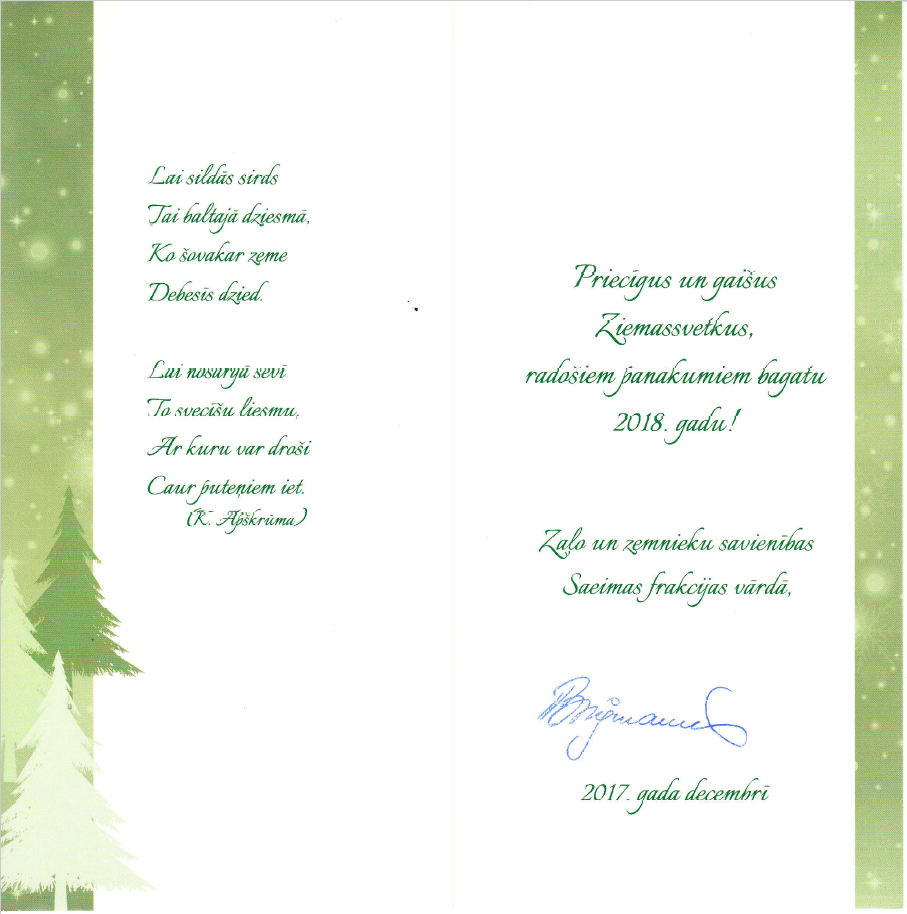 Lai sildās sirds
Tai baltajā dziesmā,
Ko šovakar zeme
Debesīs dzied.
Lai nosargā sevī
To svecīšu liesmu,
Ar kuru var droši
Caur puteņiem iet.
(K. Apškrūma)
Priecīgus un gaišus
Ziemassvētkus,
radošiem panākumiem bagātu
2018. gadu!
Zaļo un zemnieku savienības
Saeimas frakcijas vārdā,
2017. gada decembrī